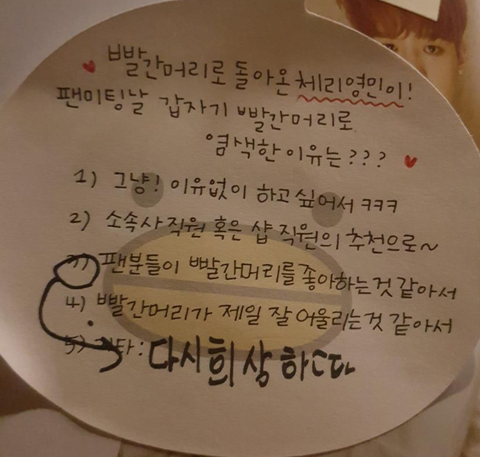 빨간머리로 돌아온 체리영민이!
팬미팅날 갑자기 빨간머리로
염색한 이유는???
1) 그냥! 이유없이 하고싶어서 ㅋㅋㅋ
2) 소속사직원 혹은 샵 직원의 추천으로~
3) 팬분들이 빨간머리를 좋아하는것 같아서
4) 빨간머리가 제일 잘 어울리는것 같아서
5) 기타: 다시 희상하다